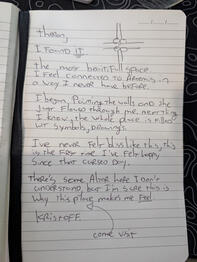 Theron,
I FOUND IT
the most beautiful space.
I feel connected to Artemis in
a way I never have before.
I began, Pouring the walls and she
just flowed through me, next thing
I know, the whole place is filled
w/ symbols, drawings.
I've never felt bliss like this, this
is the first time I've felt happy
since that cursed day.
There's some Altar here I don't
understand, but I'm sure this is
why this place makes me feel
KRISTOFF
come visit